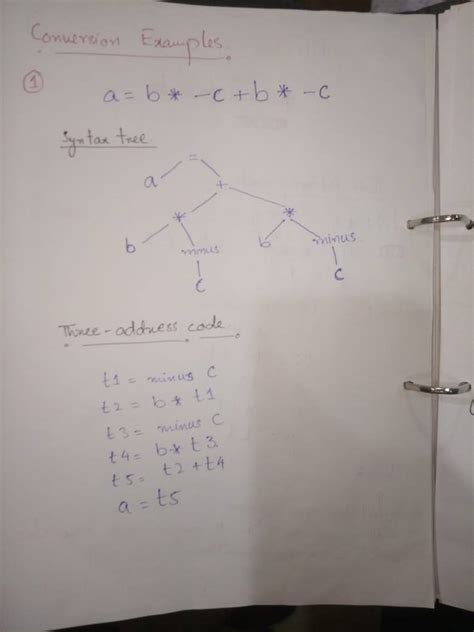 Conversion Examples.
1
a = b * -c + b * -c
Syntax tree.
=
a
+
* *
b minus b minus
c c
Three-address code.
t1 = minus c
t2 = b * t1
t3 = minus c
t4 = b * t3
t5 = t2 + t4
a = t5